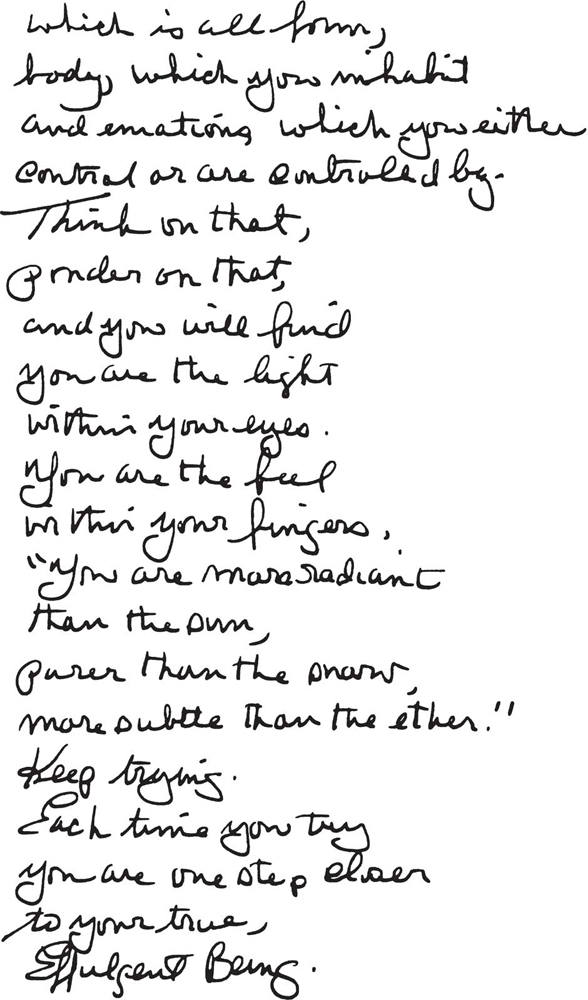 which is all form,
body, which you inhabit
and emotions, which you either
control or are controlled by.
Think on that,
ponder on that,
and you will find
you are the light
within your eyes.
You are the feel
within your fingers.
"You are more radiant
than the sun,
purer than the snow,
more subtle than the ether."
Keep trying.
Each time you try
you are one step closer
to your true,
Effulgent Being.